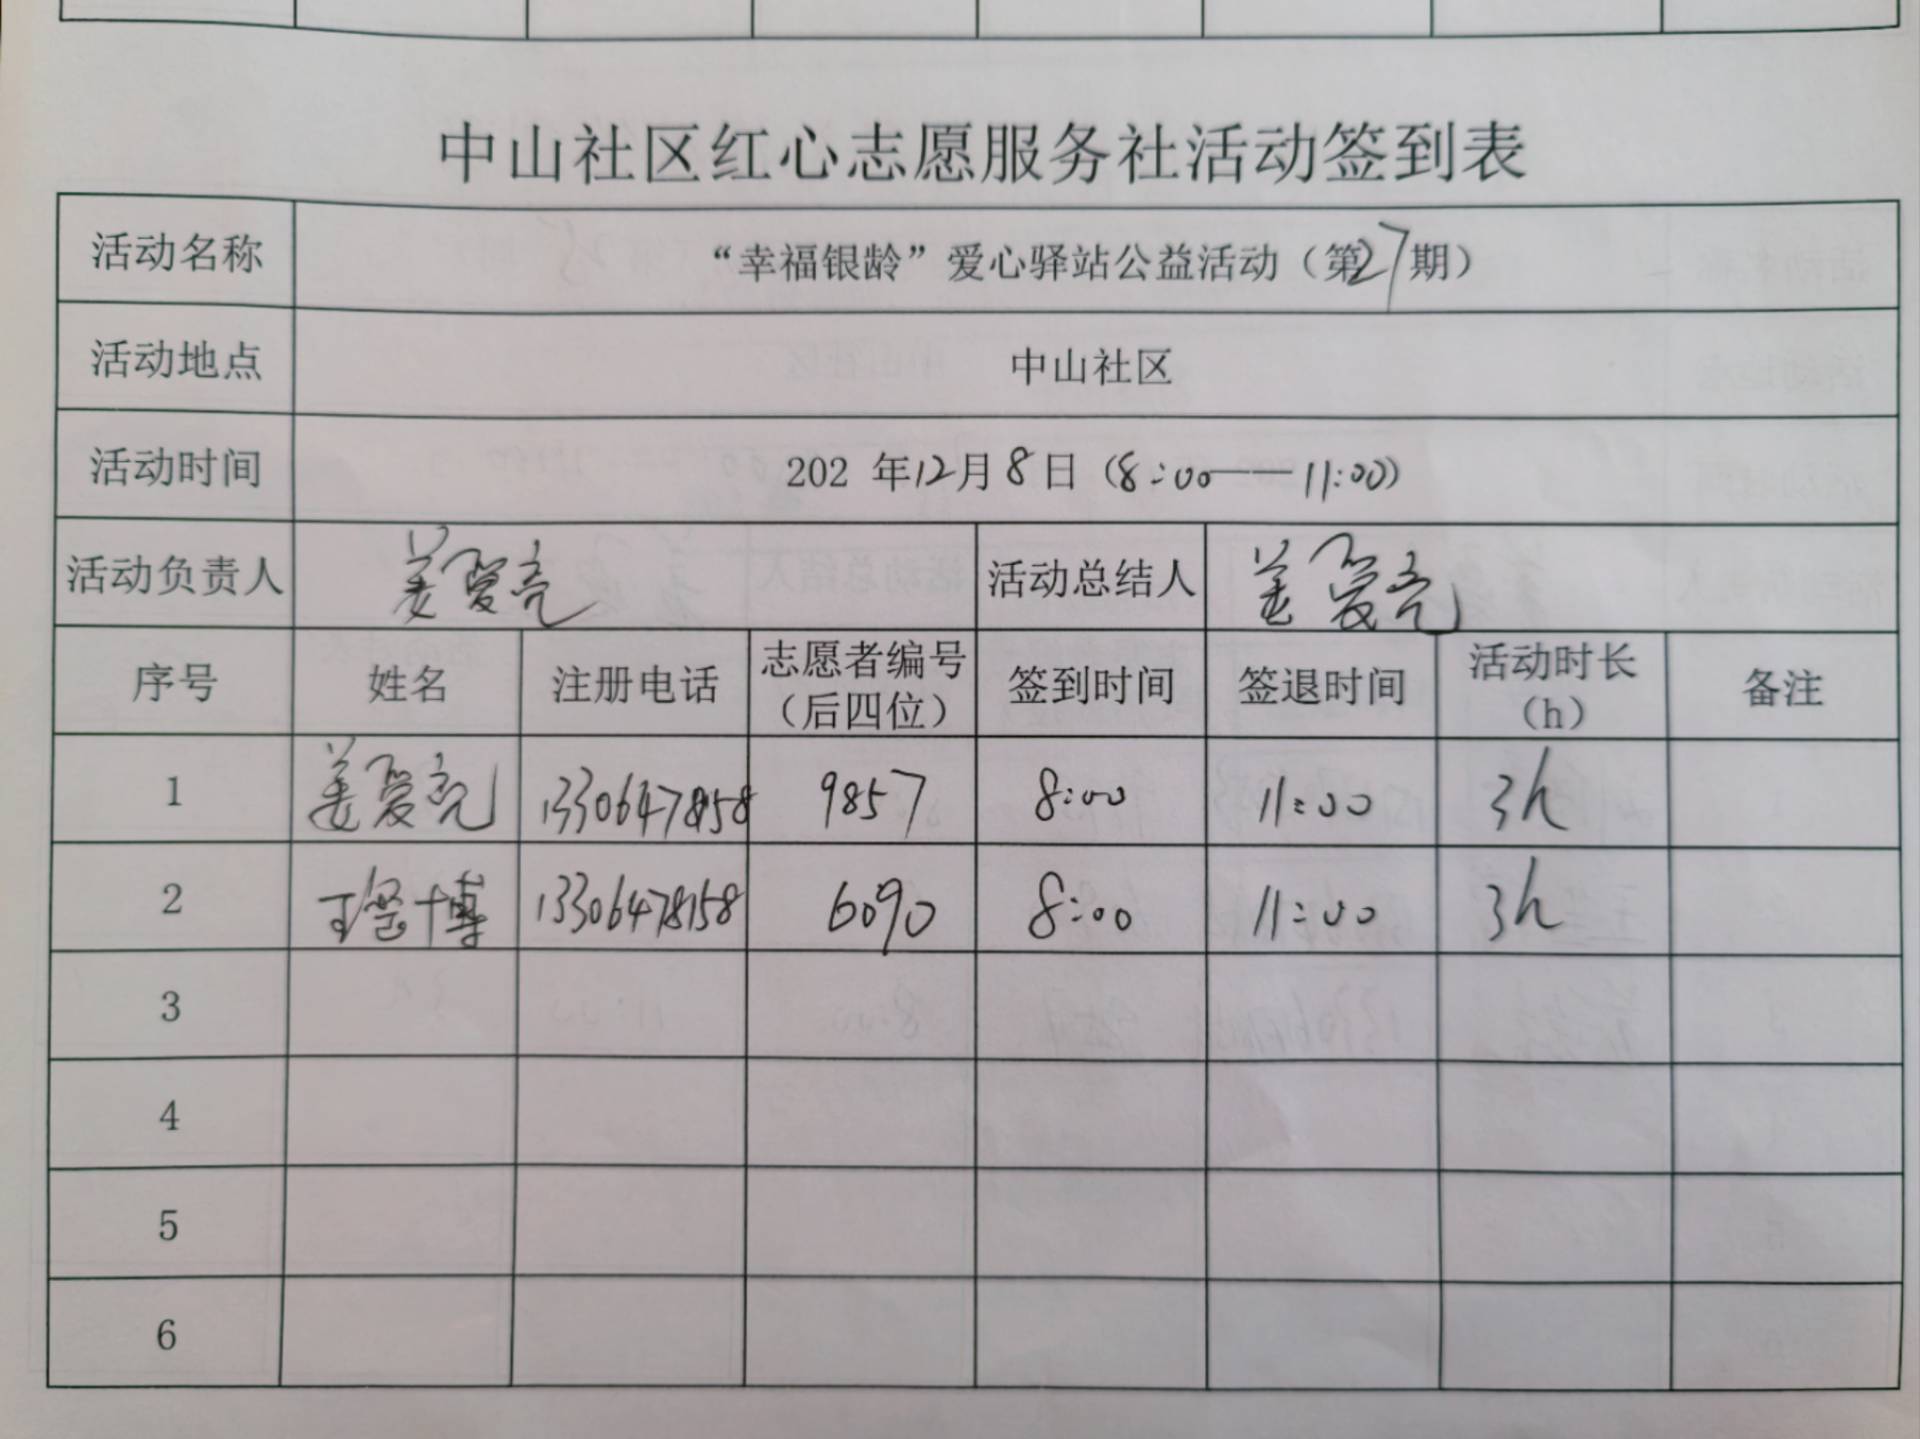 中山社区红心志愿服务社活动签到表
活动名称 “幸福银龄”爱心驿站公益活动（第27期）
活动地点 中山社区
活动时间 202 年12月8日（8:00——11:00）
活动负责人 姜爱亮 活动总结人 姜爱亮
序号 姓名 注册电话 志愿者编号（后四位） 签到时间 签退时间 活动时长（h） 备注
1 姜爱亮 9857 8:00 11:00 3h
2 13306478158 6090 8:00 11:00 3h
3
4
5
6